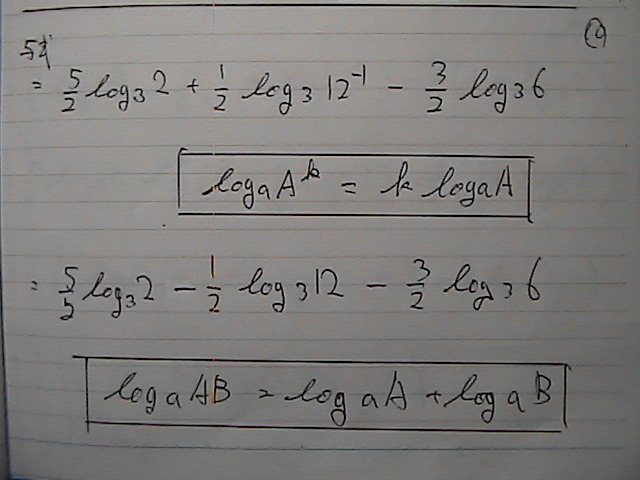 (9
与式
= 5/2 log₃2 + 1/2 log₃12⁻¹ - 3/2 log₃6
logₐAᵏ = k logₐA
= 5/2 log₃2 - 1/2 log₃12 - 3/2 log₃6
logₐAB = logₐA + logₐB